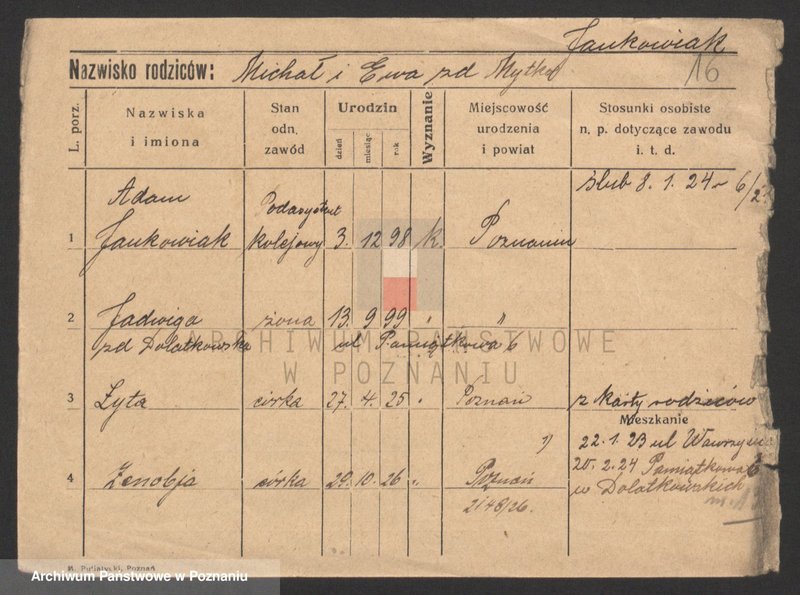 Jankowiak
Nazwisko rodziców: Michał i Ewa zd Mytka
16
L. porz.
Nazwiska
i imiona
Stan
odn.
zawód
Urodzin
dzień
miesiąc
rok
Wyznanie
Miejscowość
urodzenia
i powiat
Stosunki osobiste
n. p. dotyczące zawodu
i. t. d.
Adam
ślub 8. 1. 24
1 Jankowiak kolejowy 3. 12 98 k. Poznaniu
2 Jadwiga żona 13. 9 99 " "
zd Dolatkowska ul Pamiątkowa 6
ARCHIWUM PAŃSTWOWE
W POZNANIU
3 Zyta córka 27. 4. 25 " Poznań z karty rodziców
Mieszkanie
1) 22. 1. 23 ul
20. 2. 24 Pamiątkowa 6
4 Zenobja córka 29. 10. 26 " Poznań
w Dolatkowskich
2148/26.
M. Putiatycki, Poznań
Archiwum Państwowe w Poznaniu